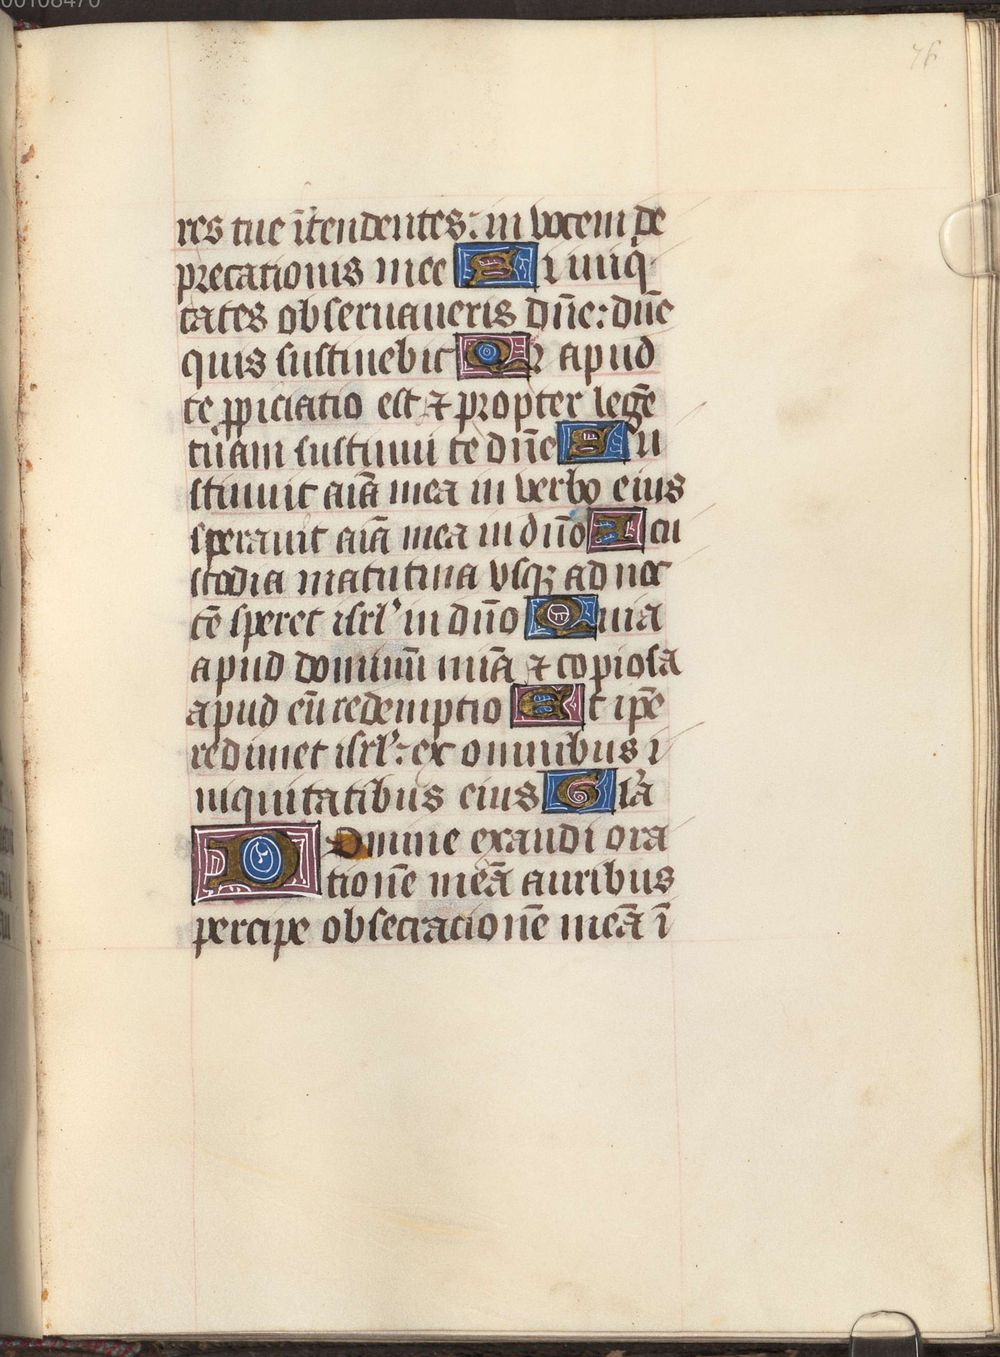 00108470
76
res tue ītendentes: in vocem de
precationis mee Si iniq
tates obseruaueris dn̄e: dn̄e
quis sustinebit Qꝛ apud
te ꝓpiciatio est ⁊ propter legē
tuam sustinui te dn̄e Su
stinuit aīa mea in verbo eius
sperauit aīa mea in dn̄o A cu
stodia matutina vsqꝫ ad noc
tē speret isrl' in dn̄o Quia
apud dominū mīa ⁊ copiosa
apud eū redemptio Et ip̄e
redimet isrl': ex omnibus i
niquitatibus eius Glā
Domine exaudi ora
tionē meā auribus
percipe obsecrationē meā ī